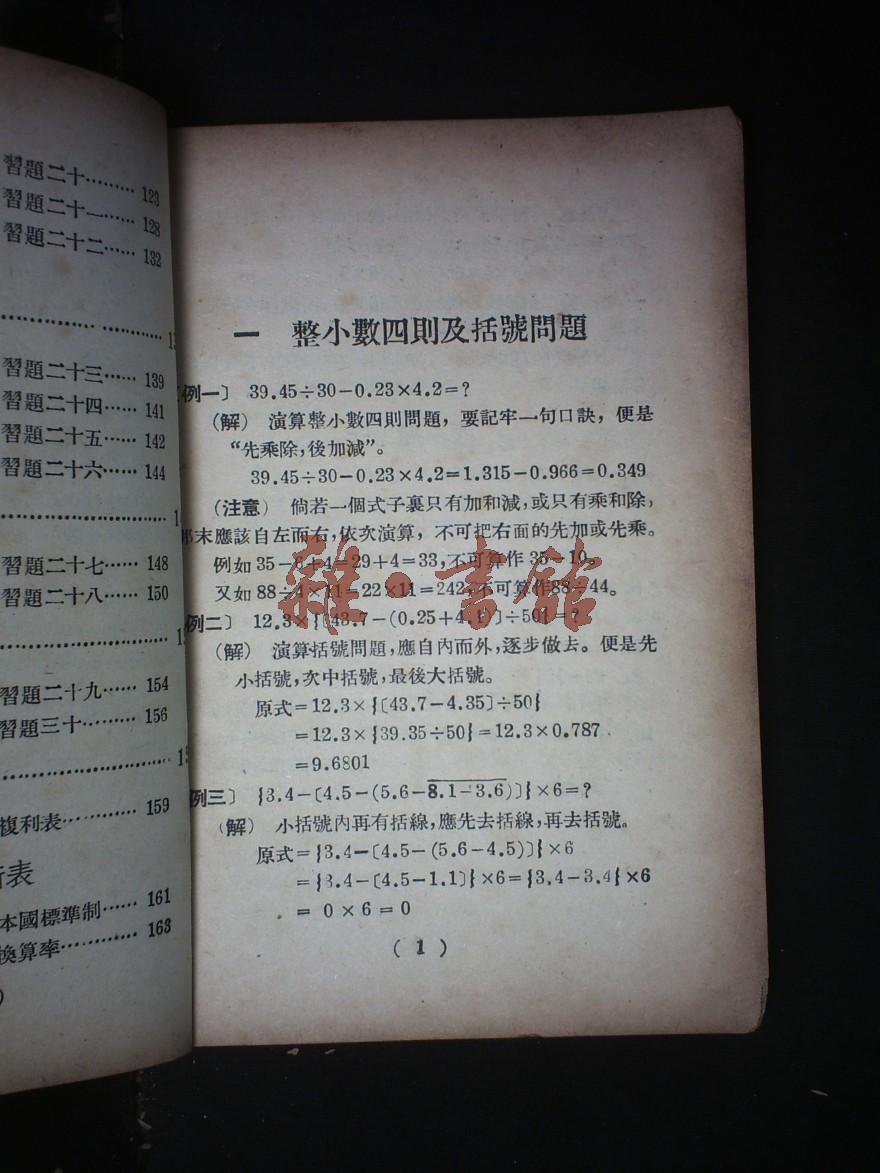 習題二十……… 123
習題二十一…… 128
習題二十二…… 132
習題二十三…… 139
習題二十四…… 141
習題二十五…… 142
習題二十六…… 144
習題二十七…… 148
習題二十八…… 150
習題二十九…… 154
習題三十……… 156
複利表………… 159
表
本國標準制…… 161
換算率………… 163
一 整小數四則及括號問題
例一〕 39.45÷30－0.23×4.2＝?
(解) 演算整小數四則問題，要記牢一句口訣，便是
“先乘除，後加減”。
39.45÷30－0.23×4.2＝1.315－0.966＝0.349
(注意) 倘若一個式子裏只有加和減，或只有乘和除，
那末應該自左而右，依次演算，不可把右面的先加或先乘。
例如 35－6＋4＝29＋4＝33，不可算作 35－10。
又如 88÷4×11＝22×11＝242，不可算作88÷44。
例二〕 12.3×{〔43.7－(0.25＋4.1)〕÷50}＝?
(解) 演算括號問題，應自內而外，逐步做去。便是先
小括號，次中括號，最後大括號。
原式＝12.3×{〔43.7－4.35〕÷50}
＝12.3×{39.35÷50}＝12.3×0.787
＝9.6801
例三〕 {3.4－〔4.5－(5.6－8.1－3.6)〕}×6＝?
(解) 小括號內再有括線，應先去括線，再去括號。
原式＝{3.4－〔4.5－(5.6－4.5)〕}×6
＝{3.4－〔4.5－1.1〕}×6＝{3.4－3.4}×6
＝ 0×6＝0
( 1 )
雜·書館